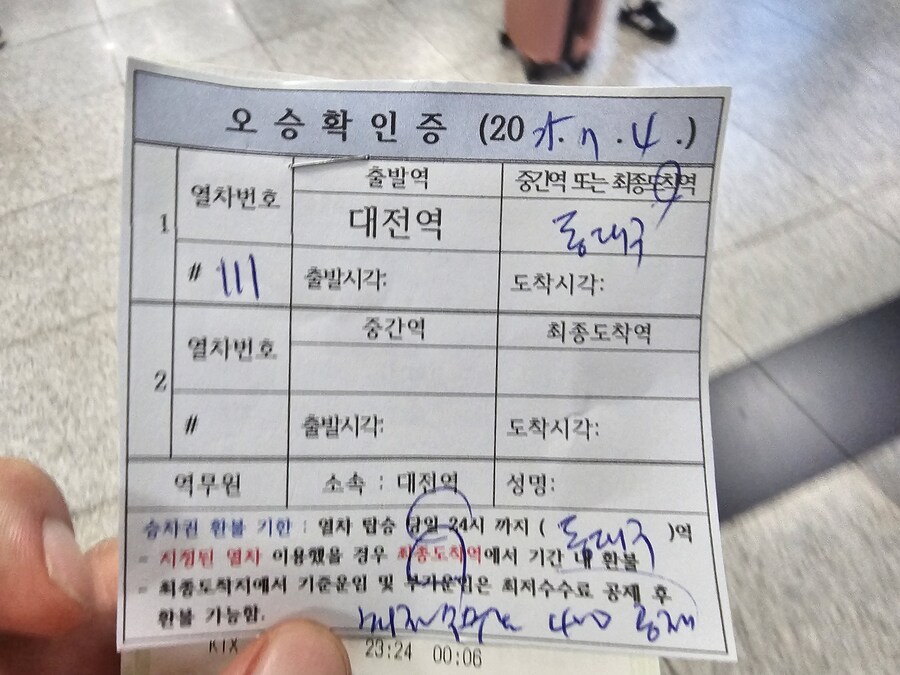 오승확인증 (20 . 7 . 4 .)
1 열차번호 출발역 중간역 또는 최종도착역
대전역 동대구
# 111 출발시각: 도착시각:
2 열차번호 중간역 최종도착역
# 출발시각: 도착시각:
역무원 소속 : 대전역 성명:
승차권 환불 기한 : 열차 탑승 당일 24시 까지 ( 동대구 )역
- 지정된 열차 이용했을 경우 최종도착역에서 기간 내 환불
- 최종도착지에서 기준운임 및 부가운임은 최저수수료 공제 후
환불 가능함.
최저수수료 400 공제
23:24 00:06